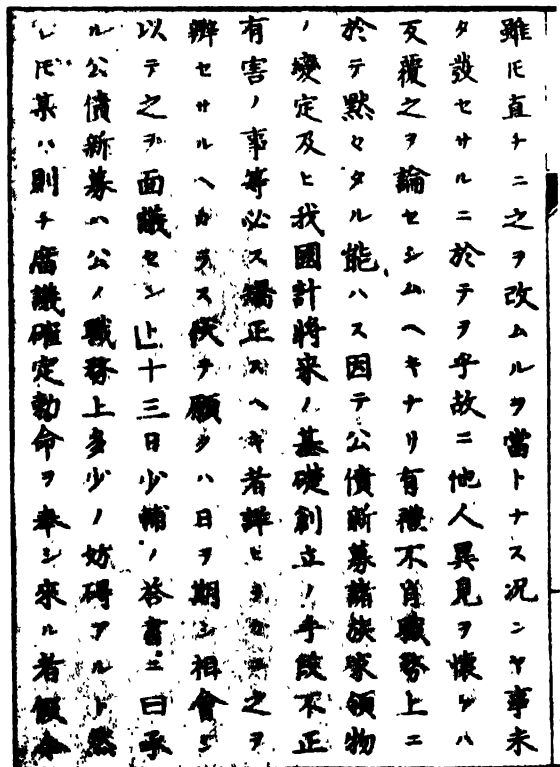 雖𪜈直チニ之ヲ改ムルヲ當トナス况ンヤ事未
タ發セサルニ於テヲヤ故ニ他人異見ヲ懷クハ
反覆之ヲ論セシムヘキナリ有禮不肖職務上ニ
於テ黙々タル能ハス因テ公債新募諸族家領物
ノ變定及ヒ我國計將來ノ基礎創立ノ手段不正
有害ノ事等必ス矯正スヘキ者 之ヲ
辨セサルヘカラス伏テ願クハ日ヲ期シ相會シ
以テ之ヲ面議センㇳ十三日少輔ノ答書ニ曰承
ル公債新募ハ公ノ職務上多少ノ妨碍アルト然
レ𪜈某ハ則チ廟議確定勅命ヲ奉シ來ル者假令